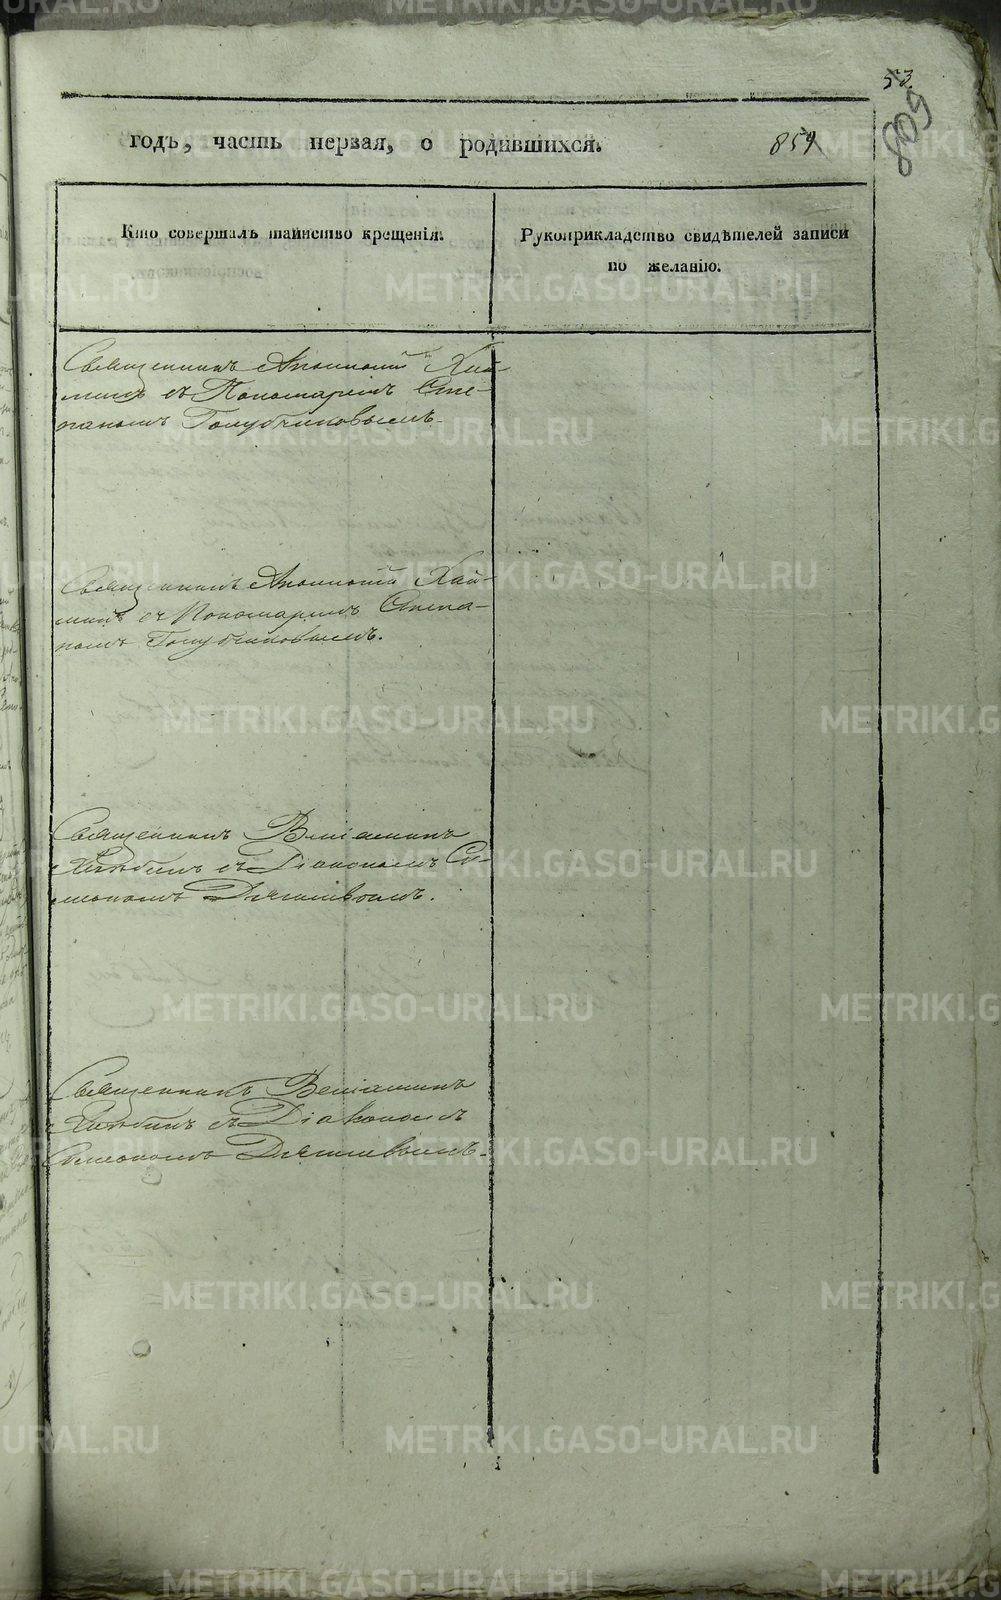 53.
809
годъ, часть первая, о родившихся.
859
Кто совершалъ таинство крещенія.
Рукоприкладство свидѣтелей записи
по желанію.
Священникъ Аполлоній Хай-
минъ съ Пономаремъ Сте-
паномъ Голубчиковымъ.
Священникъ Аполлоній Хай-
минъ съ Пономаремъ Степа-
номъ Голубчиковымъ.
Священникъ Веніаминъ
съ Діакономъ Си-
меономъ
Священникъ Веніаминъ
съ Діакономъ
Симеономъ
METRIKI.GASO-URAL.RU